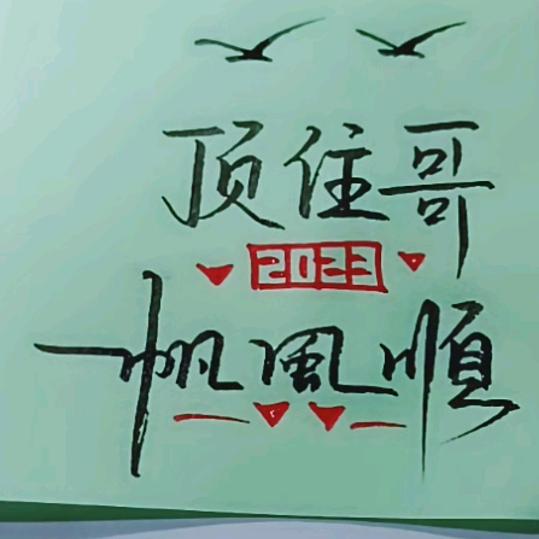 顶住哥
2023
一帆風順